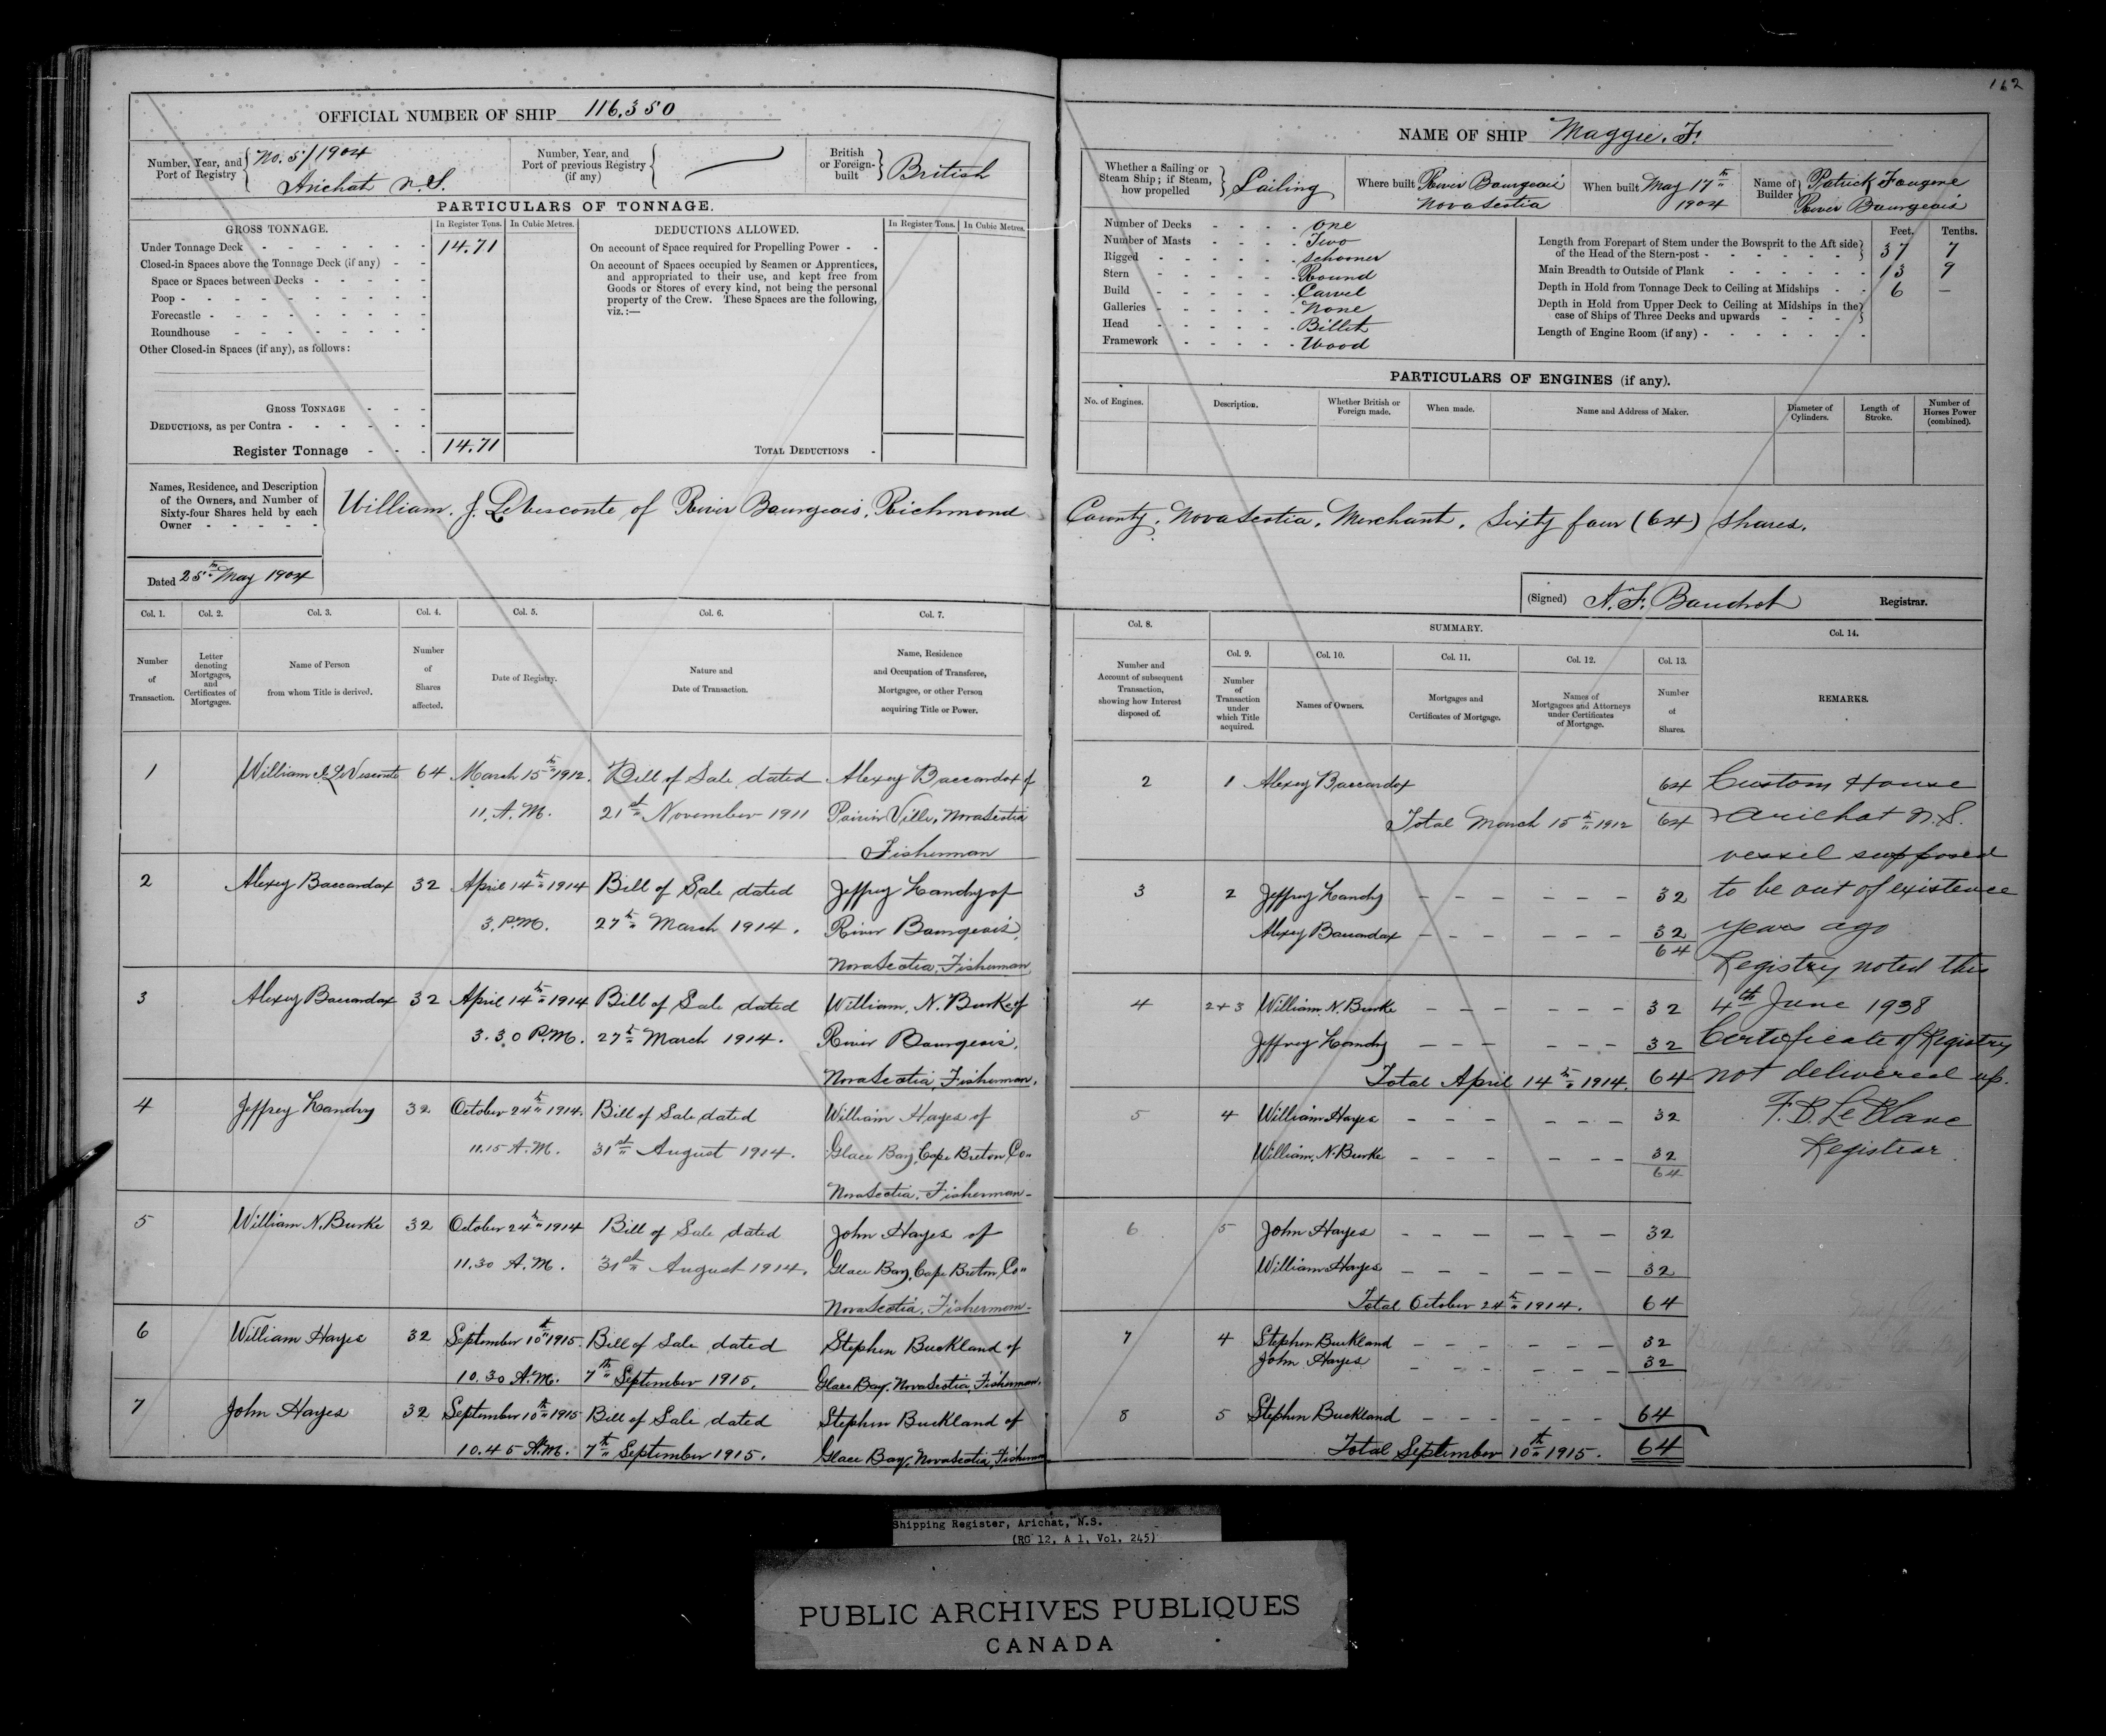 162
OFFICIAL NUMBER OF SHIP 116,350
Number, Year, and Port of Registry No. 5/1904 Arichat N.S.
Number, Year, and Port of previous Registry (if any)
British or Foreign-built British
PARTICULARS OF TONNAGE.
GROSS TONNAGE. In Register Tons. In Cubic Metres.
Under Tonnage Deck 14.71
Closed-in Spaces above the Tonnage Deck (if any)
Space or Spaces between Decks
Poop
Forecastle
Roundhouse
Other Closed-in Spaces (if any), as follows:
GROSS TONNAGE
DEDUCTIONS, as per Contra
Register Tonnage 14.71
DEDUCTIONS ALLOWED. In Register Tons. In Cubic Metres.
On account of Space required for Propelling Power
On account of Spaces occupied by Seamen or Apprentices,
and appropriated to their use, and kept free from
Goods or Stores of every kind, not being the personal
property of the Crew. These Spaces are the following,
viz.:—
TOTAL DEDUCTIONS
NAME OF SHIP Maggie. F.
Whether a Sailing or Steam Ship; if Steam, how propelled Sailing
Where built River Bourgeois Nova Scotia
When built May 17th 1904
Name of Builder Patrick Fougere River Bourgeois
Number of Decks One
Number of Masts Two
Rigged Schooner
Stern Round
Build Carvel
Galleries None
Head Billet
Framework Wood
Feet. Tenths.
Length from Forepart of Stem under the Bowsprit to the Aft side of the Head of the Stern-post 37 7
Main Breadth to Outside of Plank 13 9
Depth in Hold from Tonnage Deck to Ceiling at Midships 6 —
Depth in Hold from Upper Deck to Ceiling at Midships in the case of Ships of Three Decks and upwards
Length of Engine Room (if any)
PARTICULARS OF ENGINES (if any).
No. of Engines. Description. Whether British or Foreign made. When made. Name and Address of Maker. Diameter of Cylinders. Length of Stroke. Number of Horses Power (combined).
Names, Residence, and Description of the Owners, and Number of Sixty-four Shares held by each Owner
William. J. LeVesconte of River Bourgeois, Richmond County, Nova Scotia, Merchant, Sixty four (64) Shares.
Dated 25th May 1904
(Signed) N. F. Baudrot Registrar.
Col. 1. Col. 2. Col. 3. Col. 4. Col. 5. Col. 6. Col. 7.
Number of Transaction.
Letter denoting Mortgages, and Certificates of Mortgages.
Name of Person from whom Title is derived.
Number of Shares affected.
Date of Registry.
Nature and Date of Transaction.
Name, Residence and Occupation of Transferee, Mortgagee, or other Person acquiring Title or Power.
Col. 8. SUMMARY. Col. 14.
Col. 9. Col. 10. Col. 11. Col. 12. Col. 13.
Number and Account of subsequent Transaction, showing how Interest disposed of.
Number of Transaction under which Title acquired.
Names of Owners.
Mortgages and Certificates of Mortgage.
Names of Mortgagees and Attorneys under Certificates of Mortgage.
Number of Shares.
REMARKS.
1 William J. LeVesconte 64 March 15th 1912. Bill of Sale dated Alexey Baccardax of
11. A.M. 21st November 1911 Poirier Ville, Nova Scotia
Fisherman
2 Alexey Baccardax 32 April 14th 1914 Bill of Sale dated Jeffrey Landry of
3. P.M. 27th March 1914. River Bourgeois,
Nova Scotia, Fisherman
3 Alexey Baccardax 32 April 14th 1914 Bill of Sale dated William. N. Burke of
3.30 P.M. 27th March 1914. River Bourgeois,
Nova Scotia, Fisherman.
4 Jeffrey Landry 32 October 24th 1914. Bill of Sale dated William Hayes of
11.15 A.M. 31st August 1914. Glace Bay, Cape Breton Co"
Nova Scotia, Fisherman-
5 William N. Burke 32 October 24th 1914 Bill of Sale dated John Hayes of
11.30 A.M. 31st August 1914. Glace Bay, Cape Breton, Co"
Nova Scotia, Fisherman-
6 William Hayes 32 September 10th 1915. Bill of Sale dated Stephen Buckland of
10.30 A.M. 7th September 1915. Glace Bay, Nova Scotia, Fisherman.
7 John Hayes 32 September 10th 1915 Bill of Sale dated Stephen Buckland of
10.45 A.M. 7th September 1915. Glace Bay, Nova Scotia, Fisherman
2 1 Alexey Baccardax 64
Total March 15th 1912 64
3 2 Jeffrey Landry 32
Alexey Baccardax 32
64
4 2+3 William N. Burke 32
Jeffrey Landry 32
Total April 14th 1914. 64
5 4 William Hayes 32
William. N. Burke 32
64
6 5 John Hayes 32
William Hayes 32
Total October 24th 1914. 64
7 4 Stephen Buckland 32
John Hayes 32
8 5 Stephen Buckland 64
Total September 10th 1915. 64
Custom House
Arichat N.S.
vessel supposed
to be out of existence
years ago
Registry noted this
4th June 1938
Certificate of Registry
not delivered up.
F. D. LeBlanc
Registrar
Shipping Register, Arichat, N.S.
(RG 12, A 1, Vol. 245)
PUBLIC ARCHIVES PUBLIQUES
CANADA